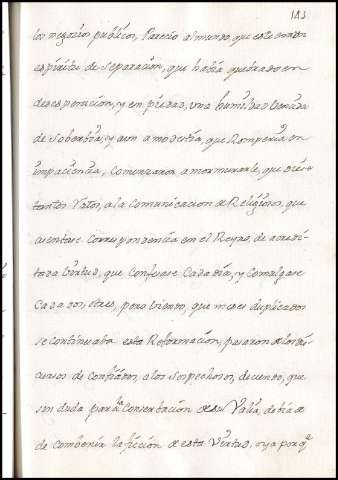 113
los negocios publicos, Parecio al mundo, que este era un
espiritu de Separacion, que había quebrado en
desesperacion, y en piedad, una humildad llena
de Soberbia, y aun a modestia, que Rompería en
impaciencia, Comenzaron a mormurarle, que die-
tantos ratos, a la Comunicacion de Religiosos, que
asentase Correspondencia en el Reyno, de acredi-
tada Virtud, que Confesase Cada dia, y Comulgase
Cada dos, e tres, pero viendo, que meses duplicados
se continuaba esta Reformacion, pasaron de los dis-
cursos de Confiados, a los Sospechosos, diciendo, que
sin duda para la Conserbacion de su Valía, debía de
de Combenir la ficcion de esta Virtud, o ya por q.e